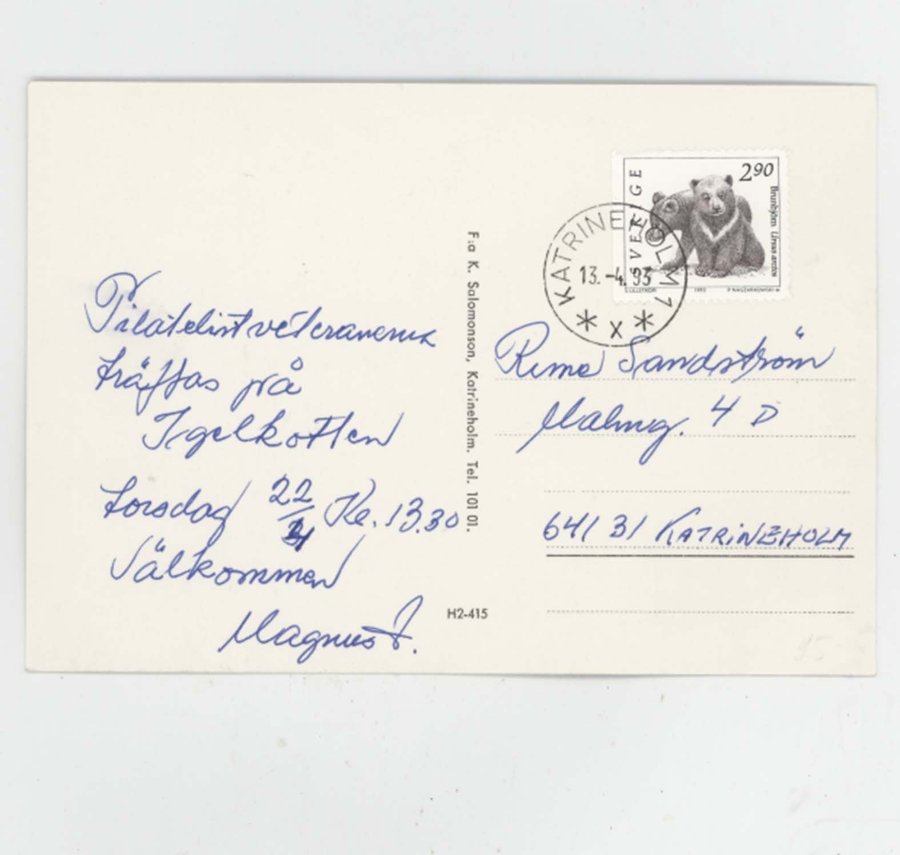 Filatelistveteranerna
träffas på
Igelkotten
torsdag 22/4 Kl. 13.30
Välkommen
Magnus
F:a K. Salomonson, Katrineholm. Tel. 101 01.
H2-415
SVERIGE
2 90
Brunbjörn Ursus arctos
1993 P NASZARKOWSKI
KATRINEHOLM 1
13.-4.93
* X *
Rune Sandström
Malmg. 4 D
641 31 KATRINEHOLM